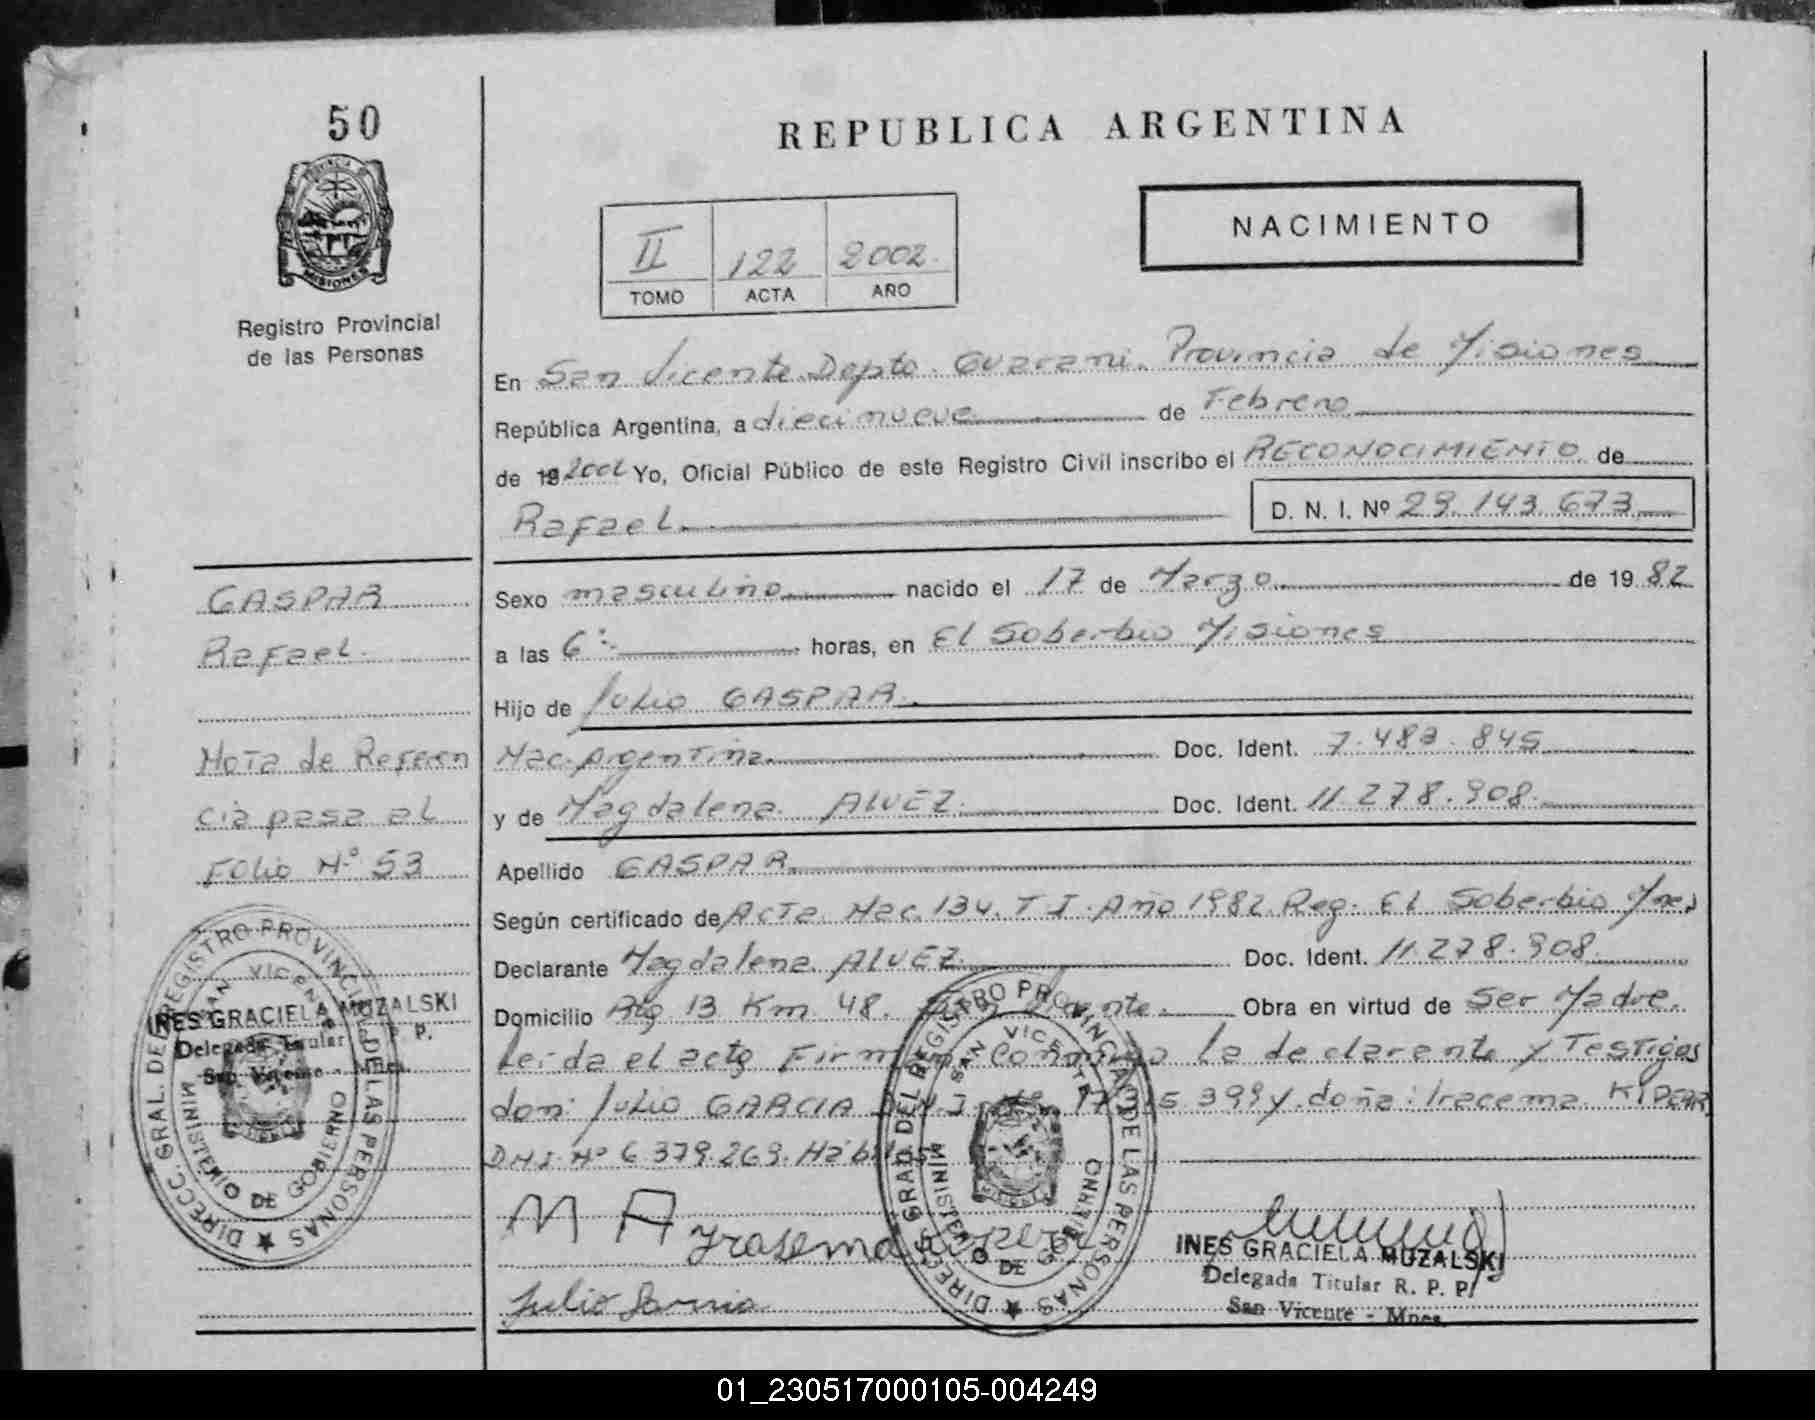 50
REPUBLICA ARGENTINA
PROVINCIA
MISIONES
II 122 2002.
TOMO ACTA AÑO
NACIMIENTO
Registro Provincial
de las Personas
En San Vicente. Depto. Guarani. Provincia de Misiones
República Argentina, a diecinueve de Febrero
de 19 2002 Yo, Oficial Público de este Registro Civil inscribo el RECONOCIMIENTO de
Rafael. D. N. I. Nº 29.143.673
GASPAR
Rafael.
Nota de Referen
cia pasa al
Folio Nº 53
Sexo masculino nacido el 17 de Marzo de 19 82
a las 6: horas, en El Soberbio Misiones
Hijo de Julio GASPAR.
Nac. Argentina. Doc. Ident. 7.483.845
y de Magdalena. ALVEZ. Doc. Ident. 11.278.908.
Apellido GASPAR
Según certificado de Acta Nac. 134. T I. Año 1982. Reg. El Soberbio Mnes
Declarante Magdalena ALVEZ. Doc. Ident. 11.278.908.
Domicilio Rta 13 Km. 48. San Vicente. Obra en virtud de Ser Madre.
Leida el acta Firman Conmigo la declarante y Testigos
don: Julio GARCIA 399 y. doña: Iracema KIPER
DNI. Nº 6.379.269. Habiles
M A
Irasema
Julio Garcia
DIRECC. GRAL. DEL REGISTRO PROVINCIAL DE LAS PERSONAS
SAN VICENTE
MINISTERIO DE GOBIERNO
INES GRACIELA MUZALSKI
Delegada Titular R. P. P.
San Vicente - Mnes.
DIRECC. GRAL. DEL REGISTRO PROVINCIAL DE LAS PERSONAS
SAN VICENTE
MINISTERIO DE GOBIERNO
INES GRACIELA MUZALSKI
Delegada Titular R. P. P.
San Vicente - Mnes.
01_230517000105-004249